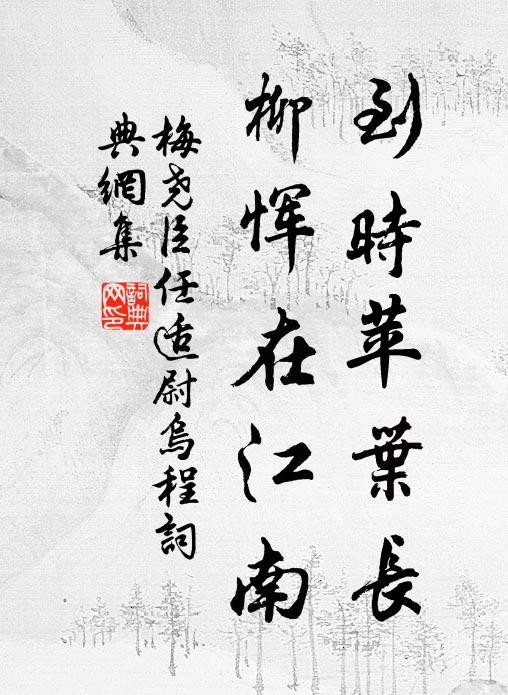 到時苹葉長
柳惲在江南
梅堯臣任适尉烏程詞
典網集
詞典網印